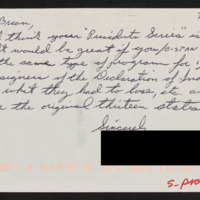 Brian,
I think your "Presidents Series" is
would be great if you/C-SPAN
the same type of program for
signers of the Declaration of Ind
what they had to lose, etc. a
the original thirteen states
Sincerely
S-PRE